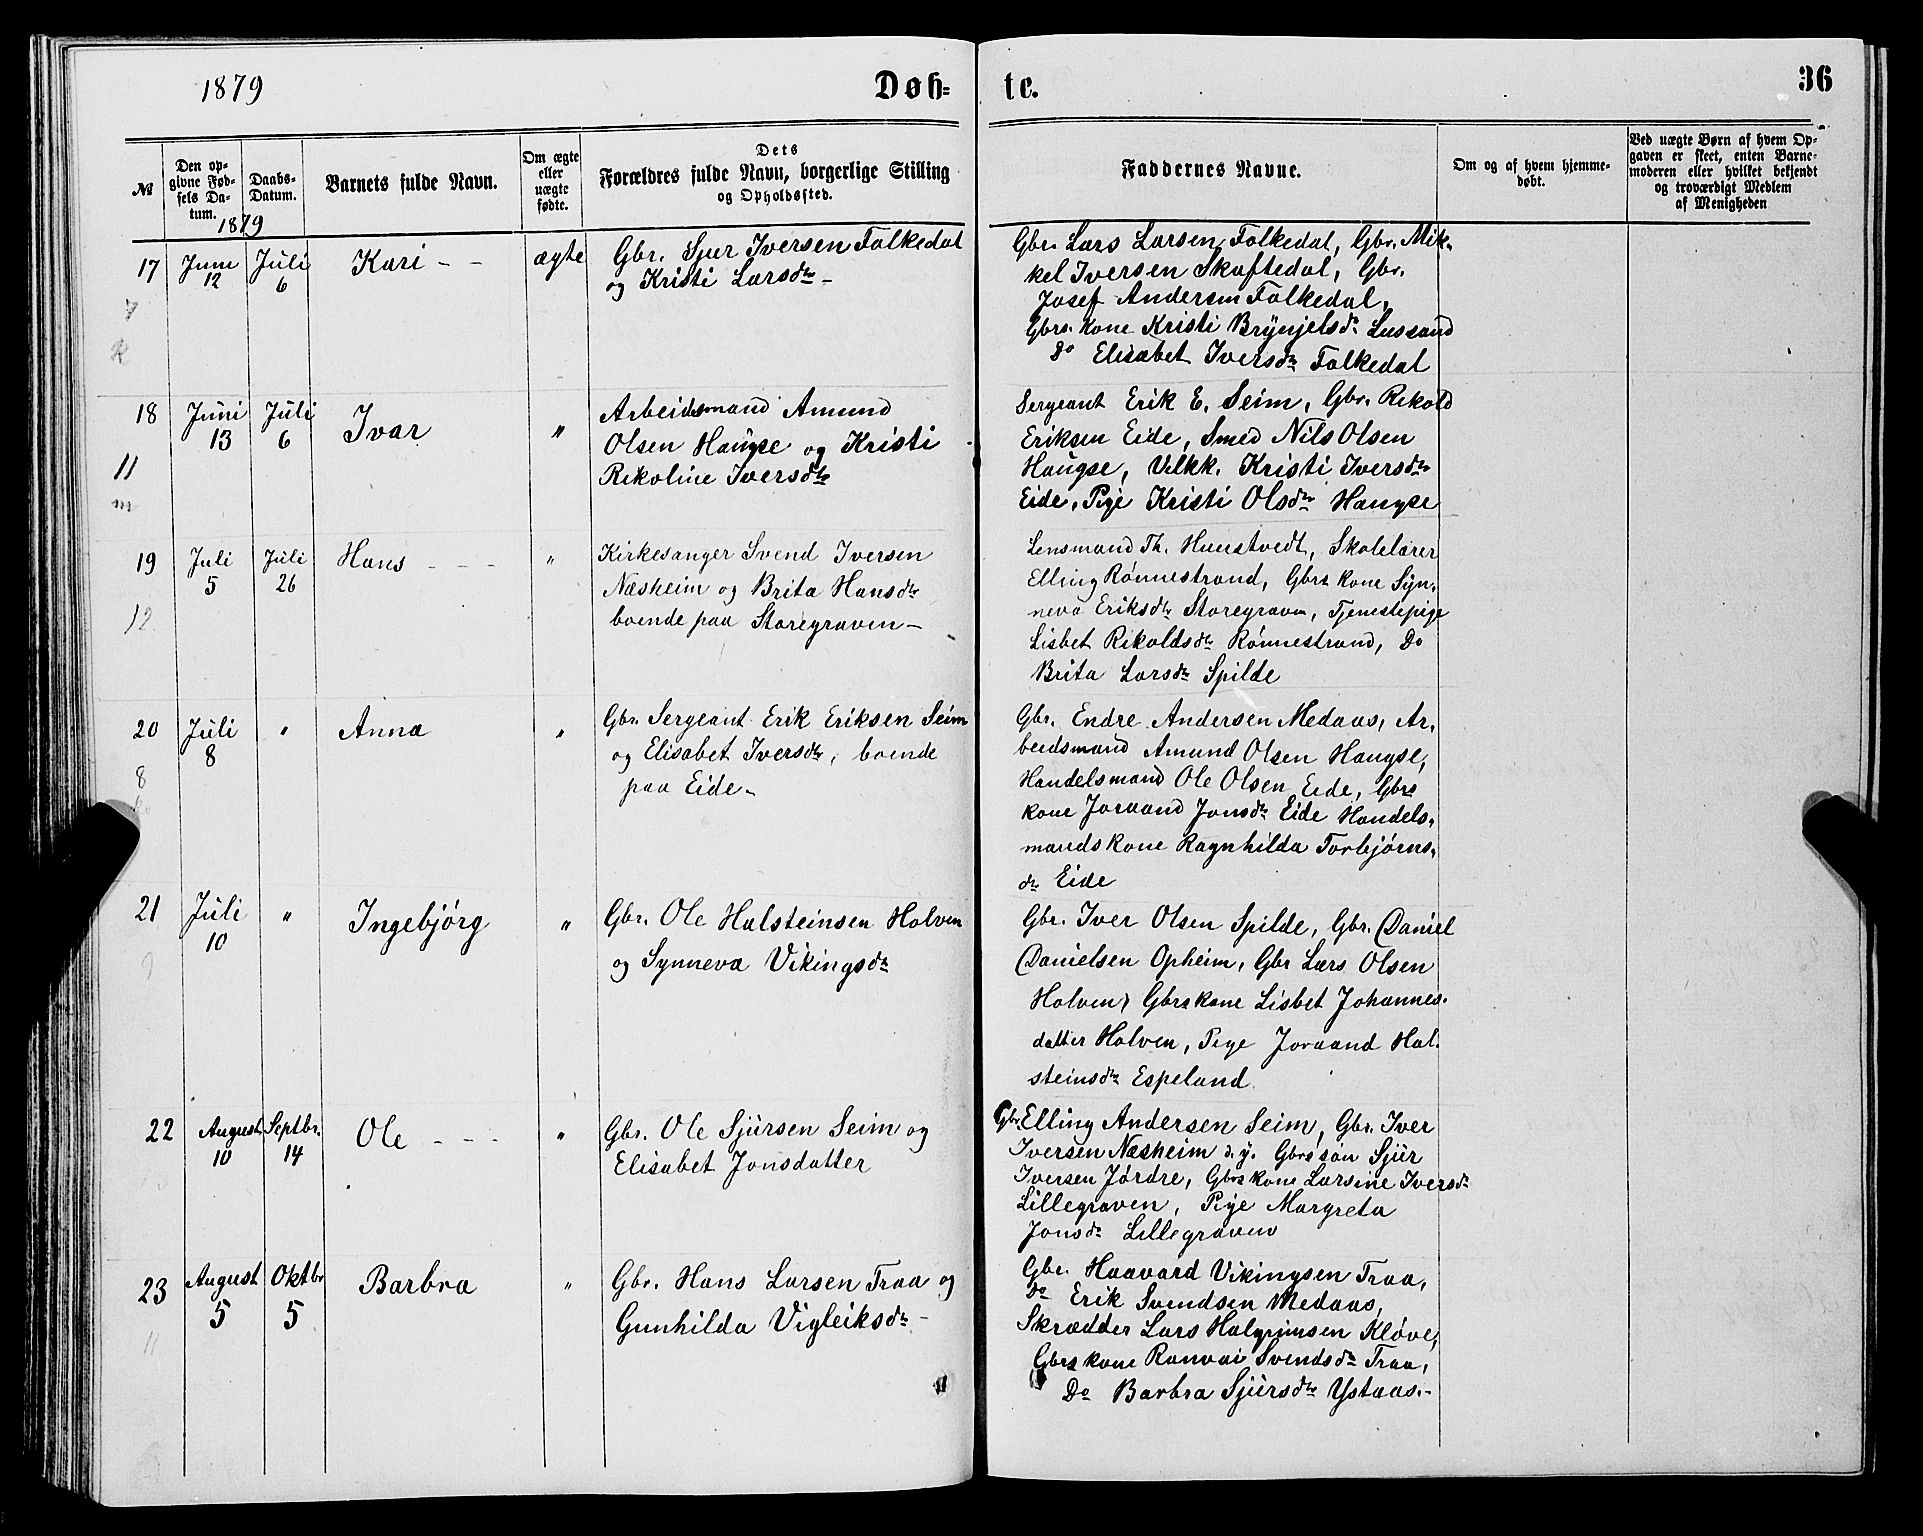 1879
Døb=
te.
36
№
Den op-
givne Fød-
sels Da-
tum.
Daabs-
Datum.
Barnets fulde Navn.
Om ægte
eller
uægte
fødte.
Dets
Forældres fulde Navn, borgerlige Stilling
og Opholdssted.
Faddernes Navne.
Om og af hvem hjemme-
døbt.
Ved uægte Børn af hvem Op-
gaven er skeet, enten Barne-
moderen eller hvilket bekjendt
og troværdigt Medlem
af Menigheden
1879
17
Juni
12
Juli
6
Kari - -
ægte
Gbr. Sjur Iversen Folkedal
og Kristi Larsdtr -
Gbr. Lars Larsen Folkedal, Gbr. Mik-
kel Iversen Skaftedal, Gbr.
Josef Andersen Folkedal,
Gbrs. kone Kristi Brynjelsdr. Lussand
Do Elisabet Iversdtr Folkedal
18
Juni
13
Juli
6
Ivar
"
Arbeidsmand Amund
Olsen Haugse og Kristi
Rikoline Iversdtr
Sergeant Erik E. Seim, Gbr. Rikold
Eriksen Eide, Smed Nils Olsen
Haugse, Kristi Iversdtr
Eide, Pige Kristi Olsdtr Haugse
11
m
19
Juli
5
Juli
26
Hans - - -
"
Kirkesanger Svend Iversen
Næsheim og Brita Hansdtr
boende paa Storegraven -
Lensmand Th. Hunstvedt, Skolelærer
Elling Rønnestrand, Gbrs kone Syn-
neva Eriksdtr Storegraven, Tjenestepige
Lisbet Rikoldsdtr Rønnestrand, Do
Brita Larsdtr Spilde
12
20
Juli
8
"
Anna
"
Gbr. Sergeant Erik Eriksen Seim
og Elisabet Iversdtr, boende
paa Eide -
Gbr. Endre Andersen Medaas, Ar-
beidsmand Amund Olsen Haugse,
Handelsmand Ole Olsen Eide, Gbrs
kone Joraand Jonsdtr Eide Handels-
mandskone Ragnhilda Torbjørns-
dtr Eide
8
21
Juli
10
"
Ingebjørg
"
Gbr. Ole Halsteinsen Holven
og Synneva Vikingsdtr
Gbr. Iver Olsen Spilde, Gbr. Daniel
Danielsen Opheim, Gbr Lars Olsen
Holven, Gbrskone Lisbet Johannes-
datter Holven, Pige Joraand Hal-
steinsdtr Espeland
9
22
August
10
Septbr.
14
Ole - - -
"
Gbr. Ole Sjursen Seim og
Elisabet Jonsdatter
Gbr. Elling Andersen Seim, Gbr. Iver
Iversen Næsheim d. y. Gbrs søn Sjur
Iversen Jørdre, Gbrskone Larsine Iversdtr
Lillegraven, Pige Margreta
Jonsdr Lillegraven
23
August
5
Oktbr
5
Barbra
"
Gbr. Hans Larsen Traa og
Gunhilda Vigleiksdtr -
Gbr. Haavard Vikingsen Traa,
Do Erik Svendsen Medaas,
Skrædder Lars Halgrimsen Kløve,
Gbrskone Ranvei Svendsdtr Traa,
Do Barbra Sjursdtr Ystaas.-
11